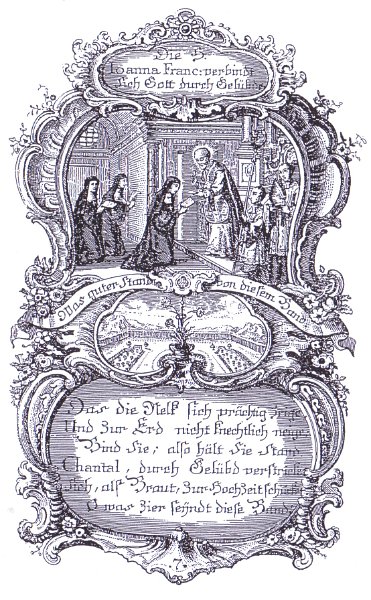 Die H.
Joanna Franc: verbindt
sich Gott durch Gelübde
Was guter Stand von diesem Band
Das die Nelk sich prächtig zeige
Und zur Erd nicht knechtlich neige
Bind Sie; also hält Sie Stand
Chantal, durch Gelübd verstrickt
Sich, als Braut, zur Hochzeit schickt
O was Zier seÿndt diese Band.
7.